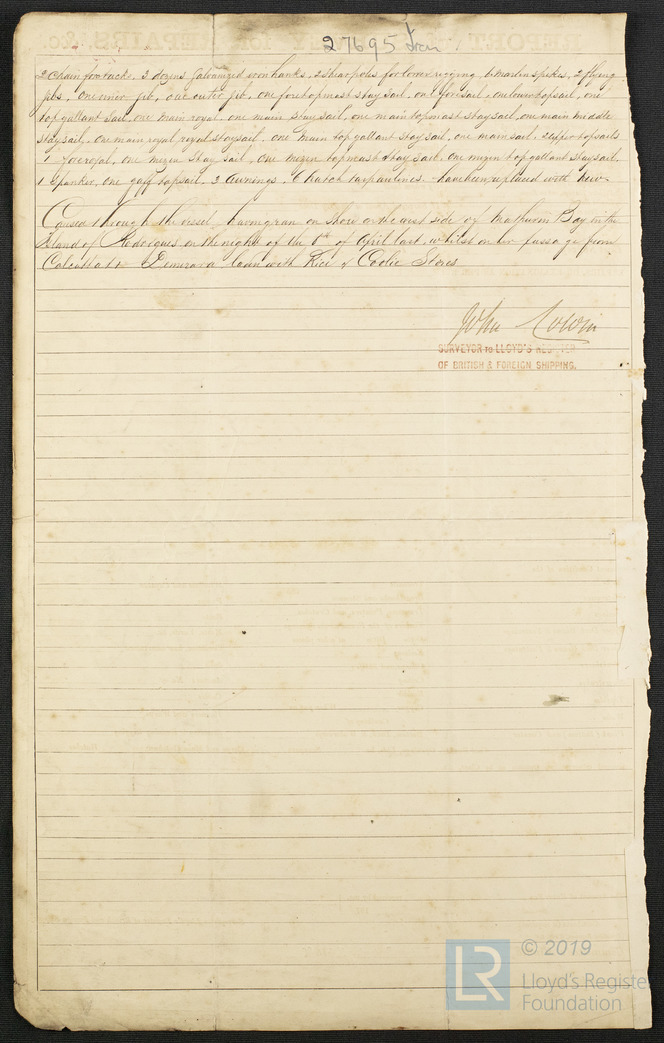 27695 Iron
2 chain fore tacks. 3 dozens Galvanized iron hanks, 2 Sheerpoles for lower rigging 6 Marlin spikes, 2 flying
jibs, One inner jib, one outer jib, one fore topmast stay sail, one foresail, one lower topsail, one
top gallant sail, one main royal, one main sail, one main topmast staysail, one main middle
staysail, one main royal royal staysail, one main top gallant stay sail, one main sail, 2 upper topsails
1 fore royal, one mizen stay sail, One mizen topmast stay sail, one mizen top gallant staysail,
1 Spanker, one gaff topsail. 3 Awnings. Hatch tarpaulines. have been replaced with new
Caused through the vessel having ran on shore on the west side of Mathurin Bay in the
Island of Rodrigues on the night of the 6th of April last whilst on her passage from
Calcutta to Demerara laden with Rice & Coolie Stores
John
SURVEYOR TO LLOYD'S REGISTER
OF BRITISH & FOREIGN SHIPPING.
LR © 2019
Lloyd's Register
Foundation